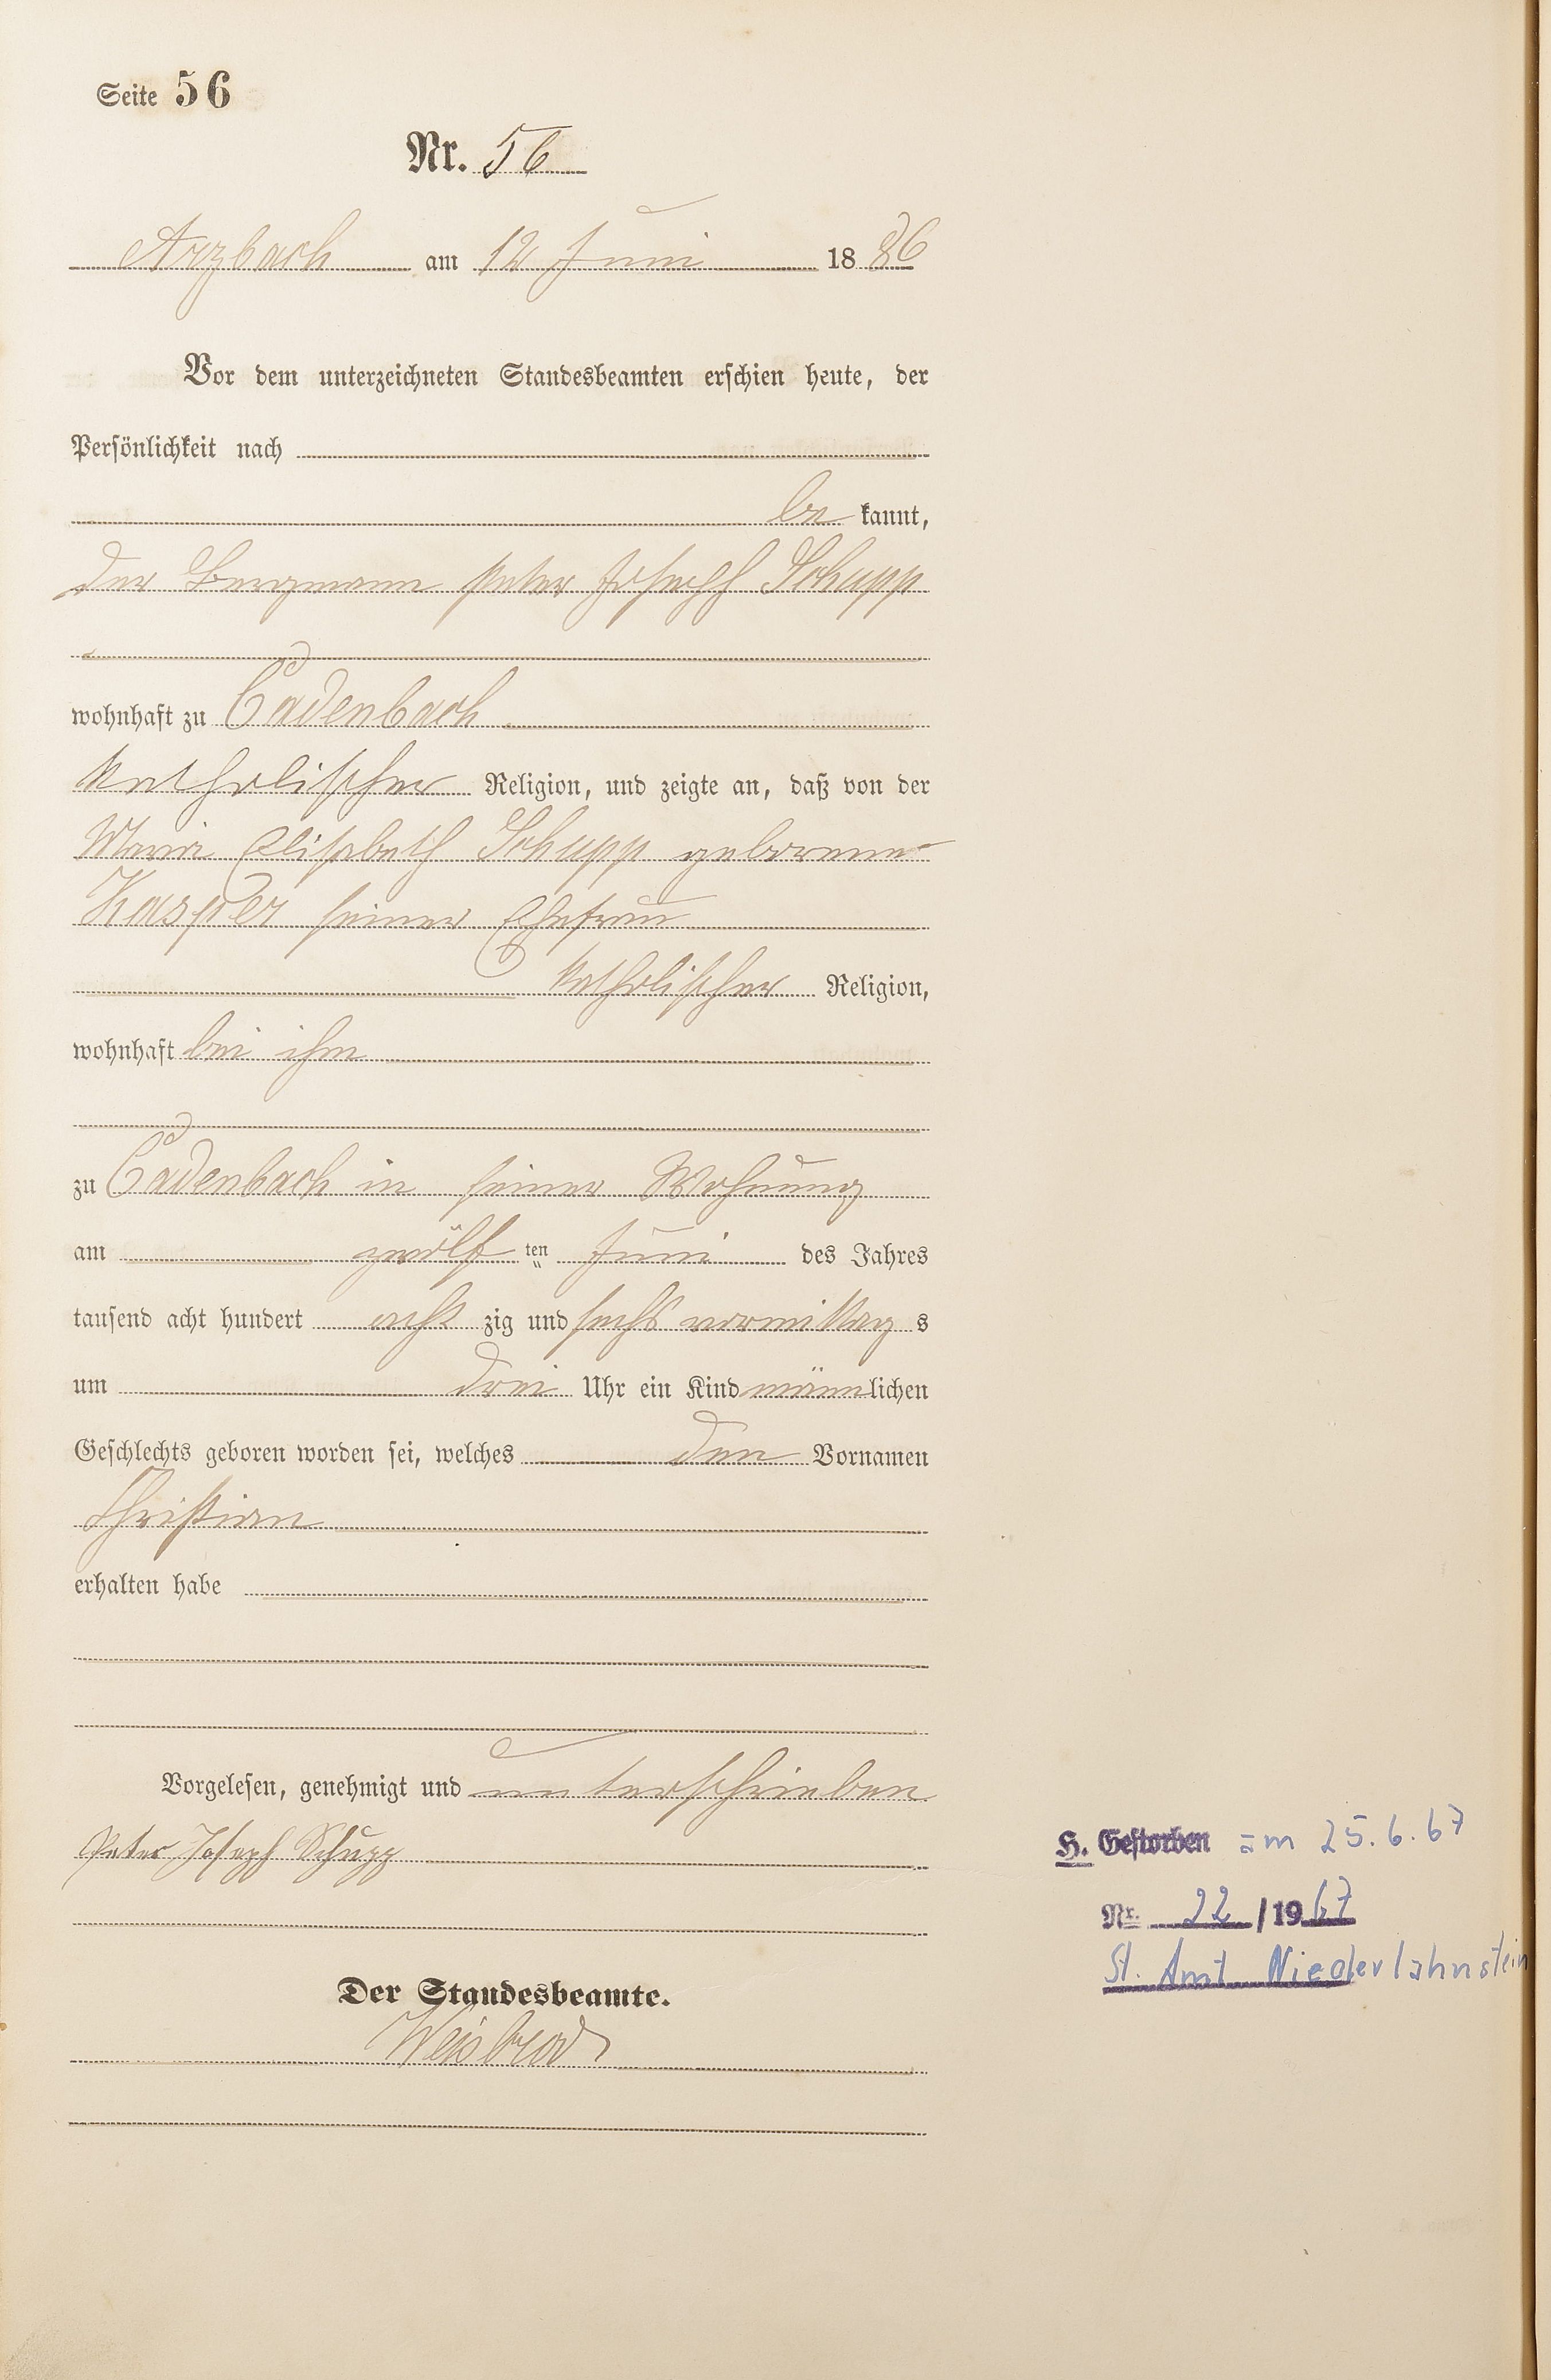 Seite 56
Nr. 56
Arzbach am 12 Juni 1886
Vor dem unterzeichneten Standesbeamten erschien heute, der
Persönlichkeit nach
be kannt,
der Bergmann Peter Joseph Schupp
wohnhaft zu Cadenbach
katholischer Religion, und zeigte an, daß von der
Maria Elisabeth Schupp geborene
Kasper seiner Ehefrau
katholischer Religion,
wohnhaft bei ihm
zu Cadenbach in seiner Wohnung
am zwölf ten Juni des Jahres
tausend acht hundert acht zig und sechs vormittag s
um drei Uhr ein Kind männlichen
Geschlechts geboren worden sei, welches den Vornamen
Christian
erhalten habe
Vorgelesen, genehmigt und unterschrieben
Peter Joseph Schupp
H. Gestorben am 25.6.67
Nr. 22/1967
St. Amt Niederlahnstein
Der Standesbeamte.
Weisbrod